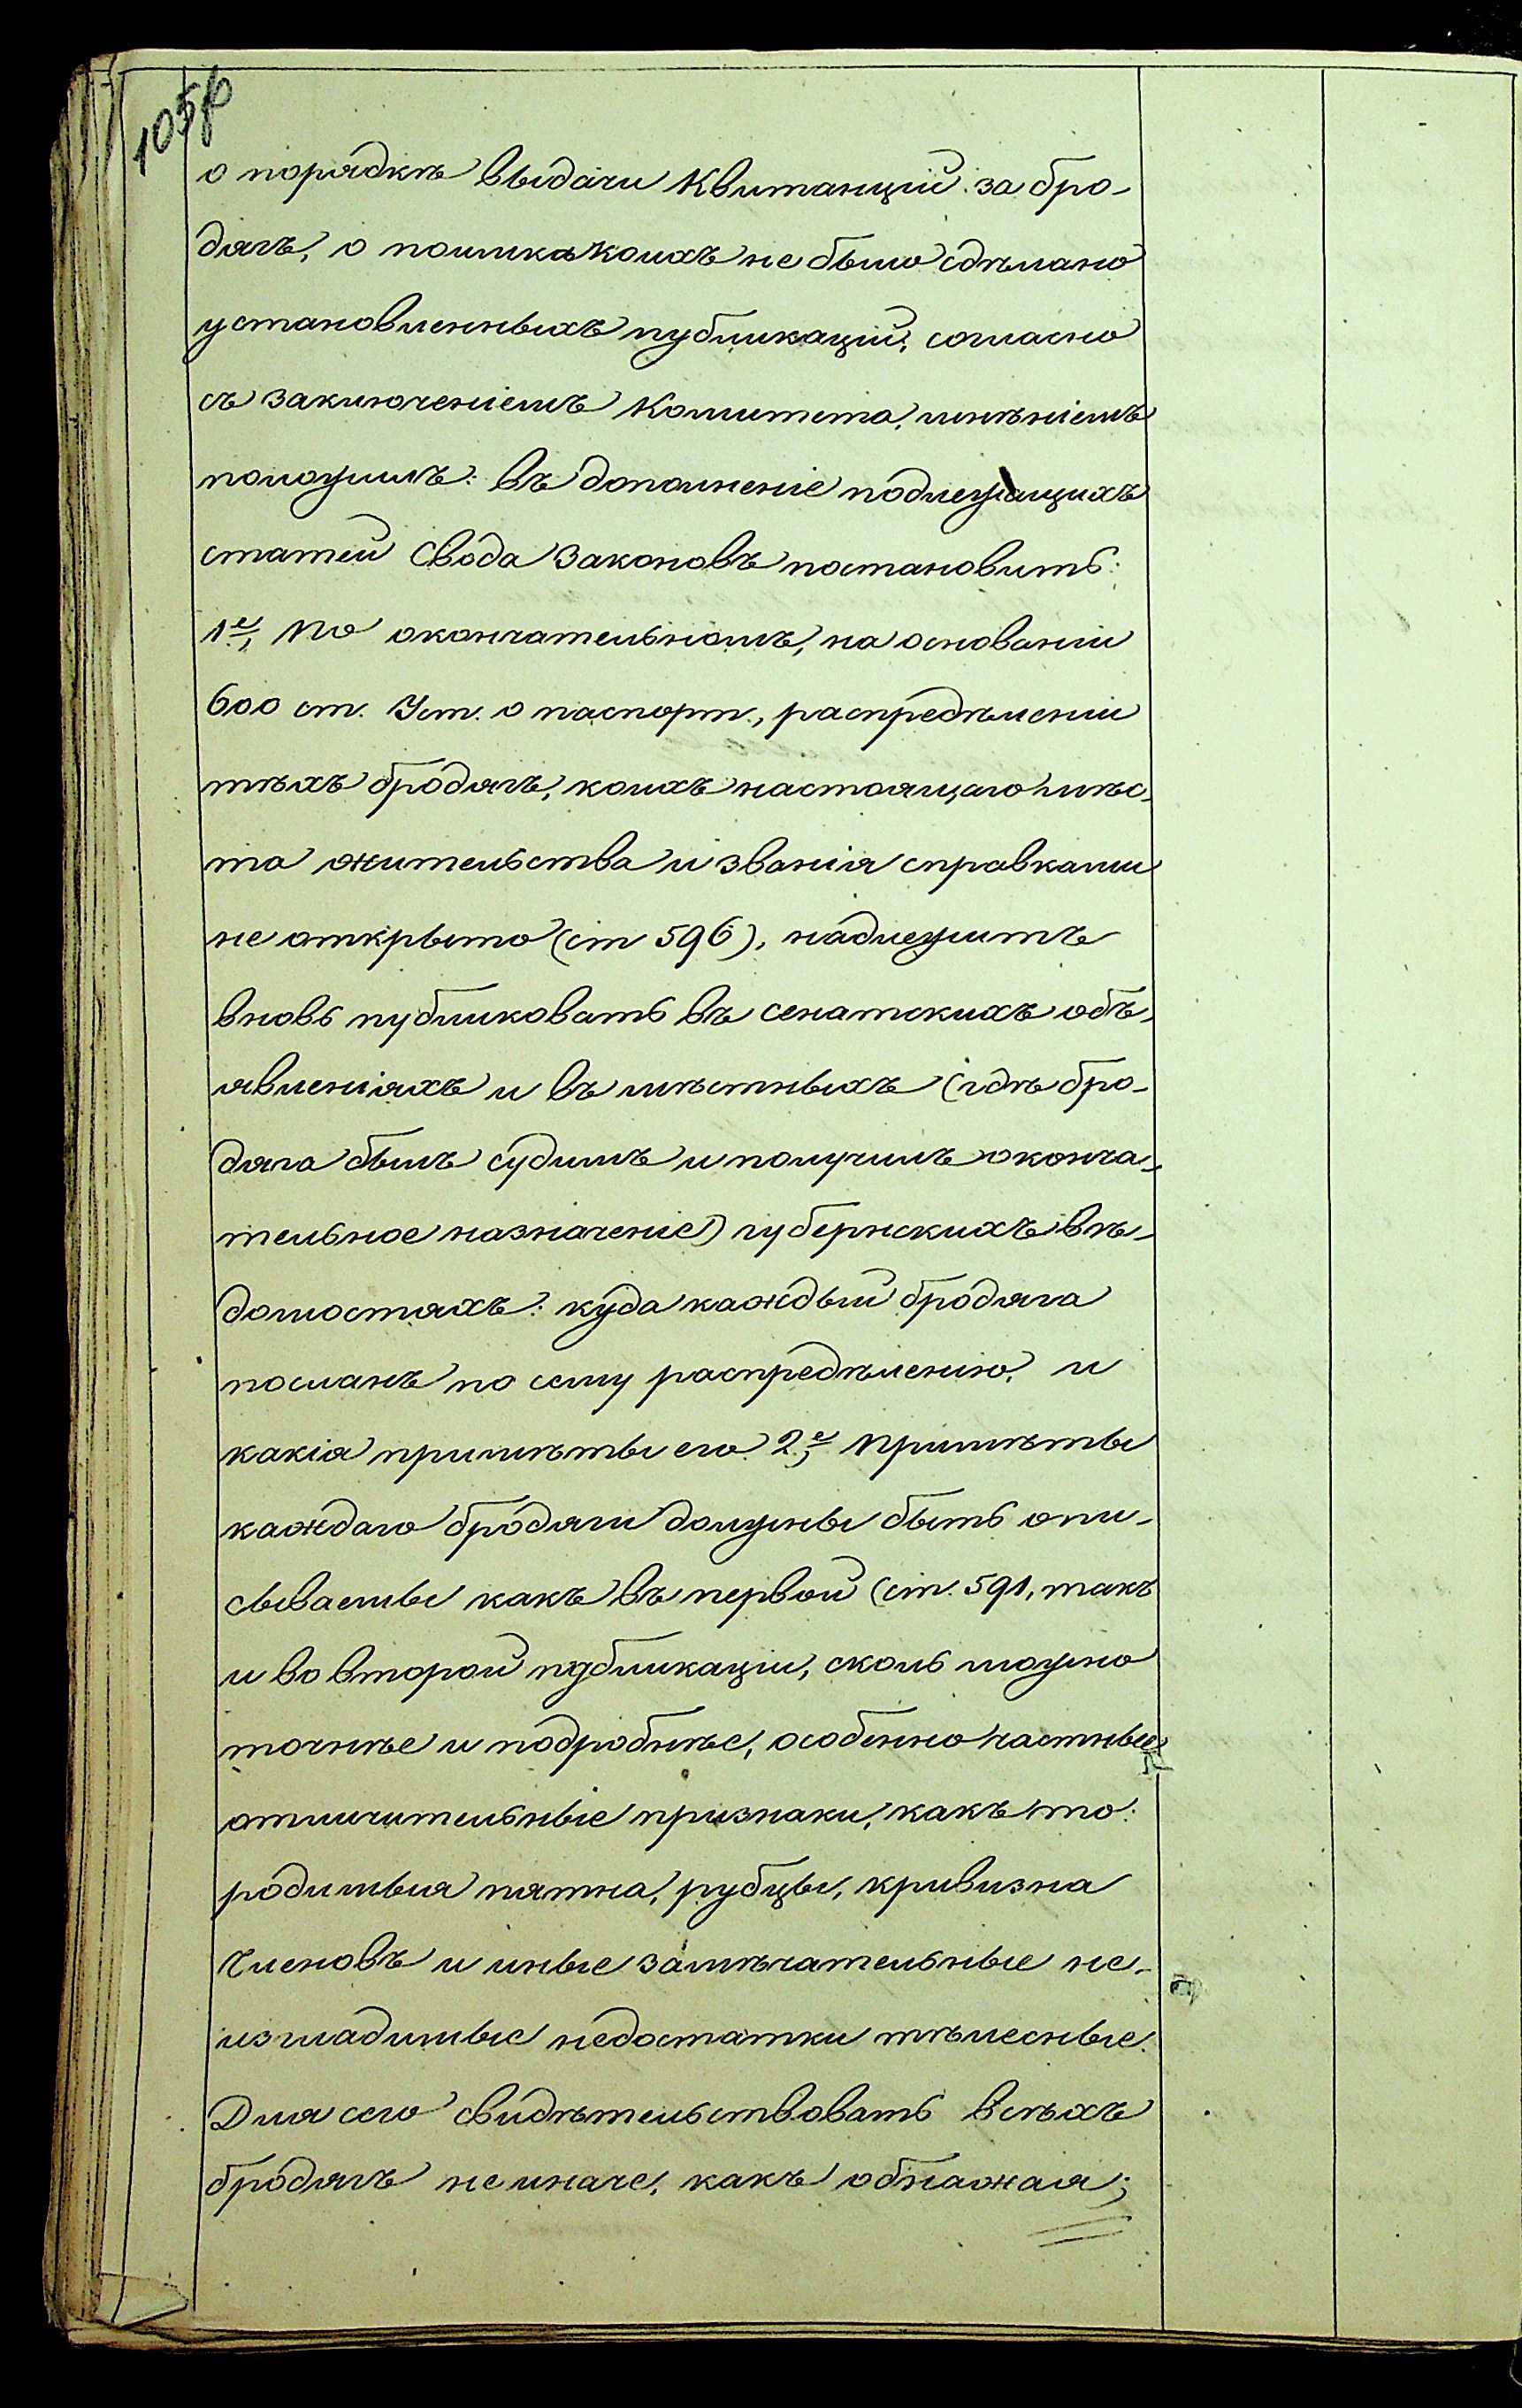 о порядкѣ выдачи Квитанцiй за бро-
дягъ, о поимкѣ коихъ не было сдѣлано
установленныхъ публикацiй, согласно
съ заключенiемъ Комитета, мнѣнiемъ
положилъ: въ дополненiе подлежащихъ
статей Свода Законовъ постановить:
1е, По окончательномъ, на основанiи
600 ст. Уст. о паспорт., распредѣленiи
тѣхъ бродягъ, коихъ настоящаго мѣс-
та жительства и званiя справками
не открыто (ст 596), надлежитъ
вновь публиковать въ сенатскихъ объ-
явленiяхъ и въ мѣстныхъ (гдѣ бро-
дяга былъ судимъ и получилъ оконча-
тельное назначенiе) губернскихъ вѣ-
домостяхъ: куда каждый бродяга
посланъ по сему распредѣленiю, и
какiя примѣты его. 2е, Примѣты
каждаго бродяги должны быть опи-
сываемы какъ въ первой (ст. 591, такъ
и во второй публикацiи, сколь можно
точнѣе и подробнѣе, особенно частные
отличительные признаки, какъ то:
родимыя пятна, рубцы, кривизна
членовъ и иные замѣчательные не-
изгладимые недостатки тѣлесные.
Для сего свидѣтельствовать всѣхъ
бродягъ не иначе, какъ обнажая;